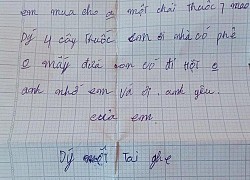 em mua cho a một chai thuốc 7 mao
Dý 4 cây thuốc em ơi nhà có phê
e mấy đứa con có đi hội e
anh nhớ em và ơi anh yêu
của em.
Dý tai ghẹ